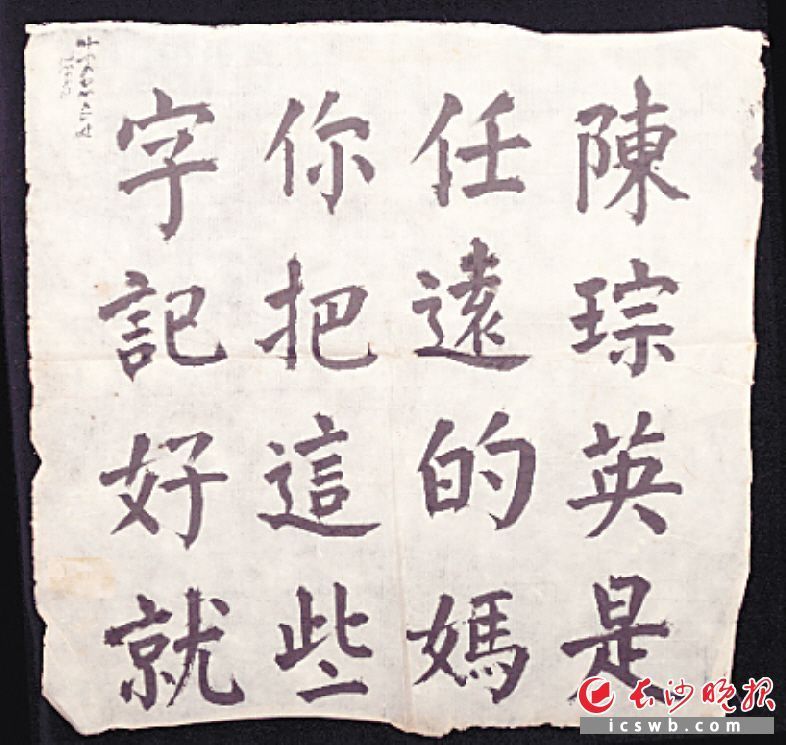 陳琮英是
任遠的媽
你把這些
字記好就
长沙晚报
icswb.com